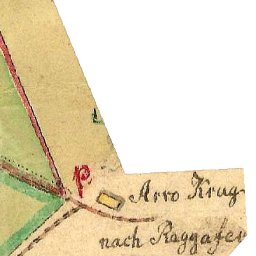 p
Arro Krug
nach Raggafer